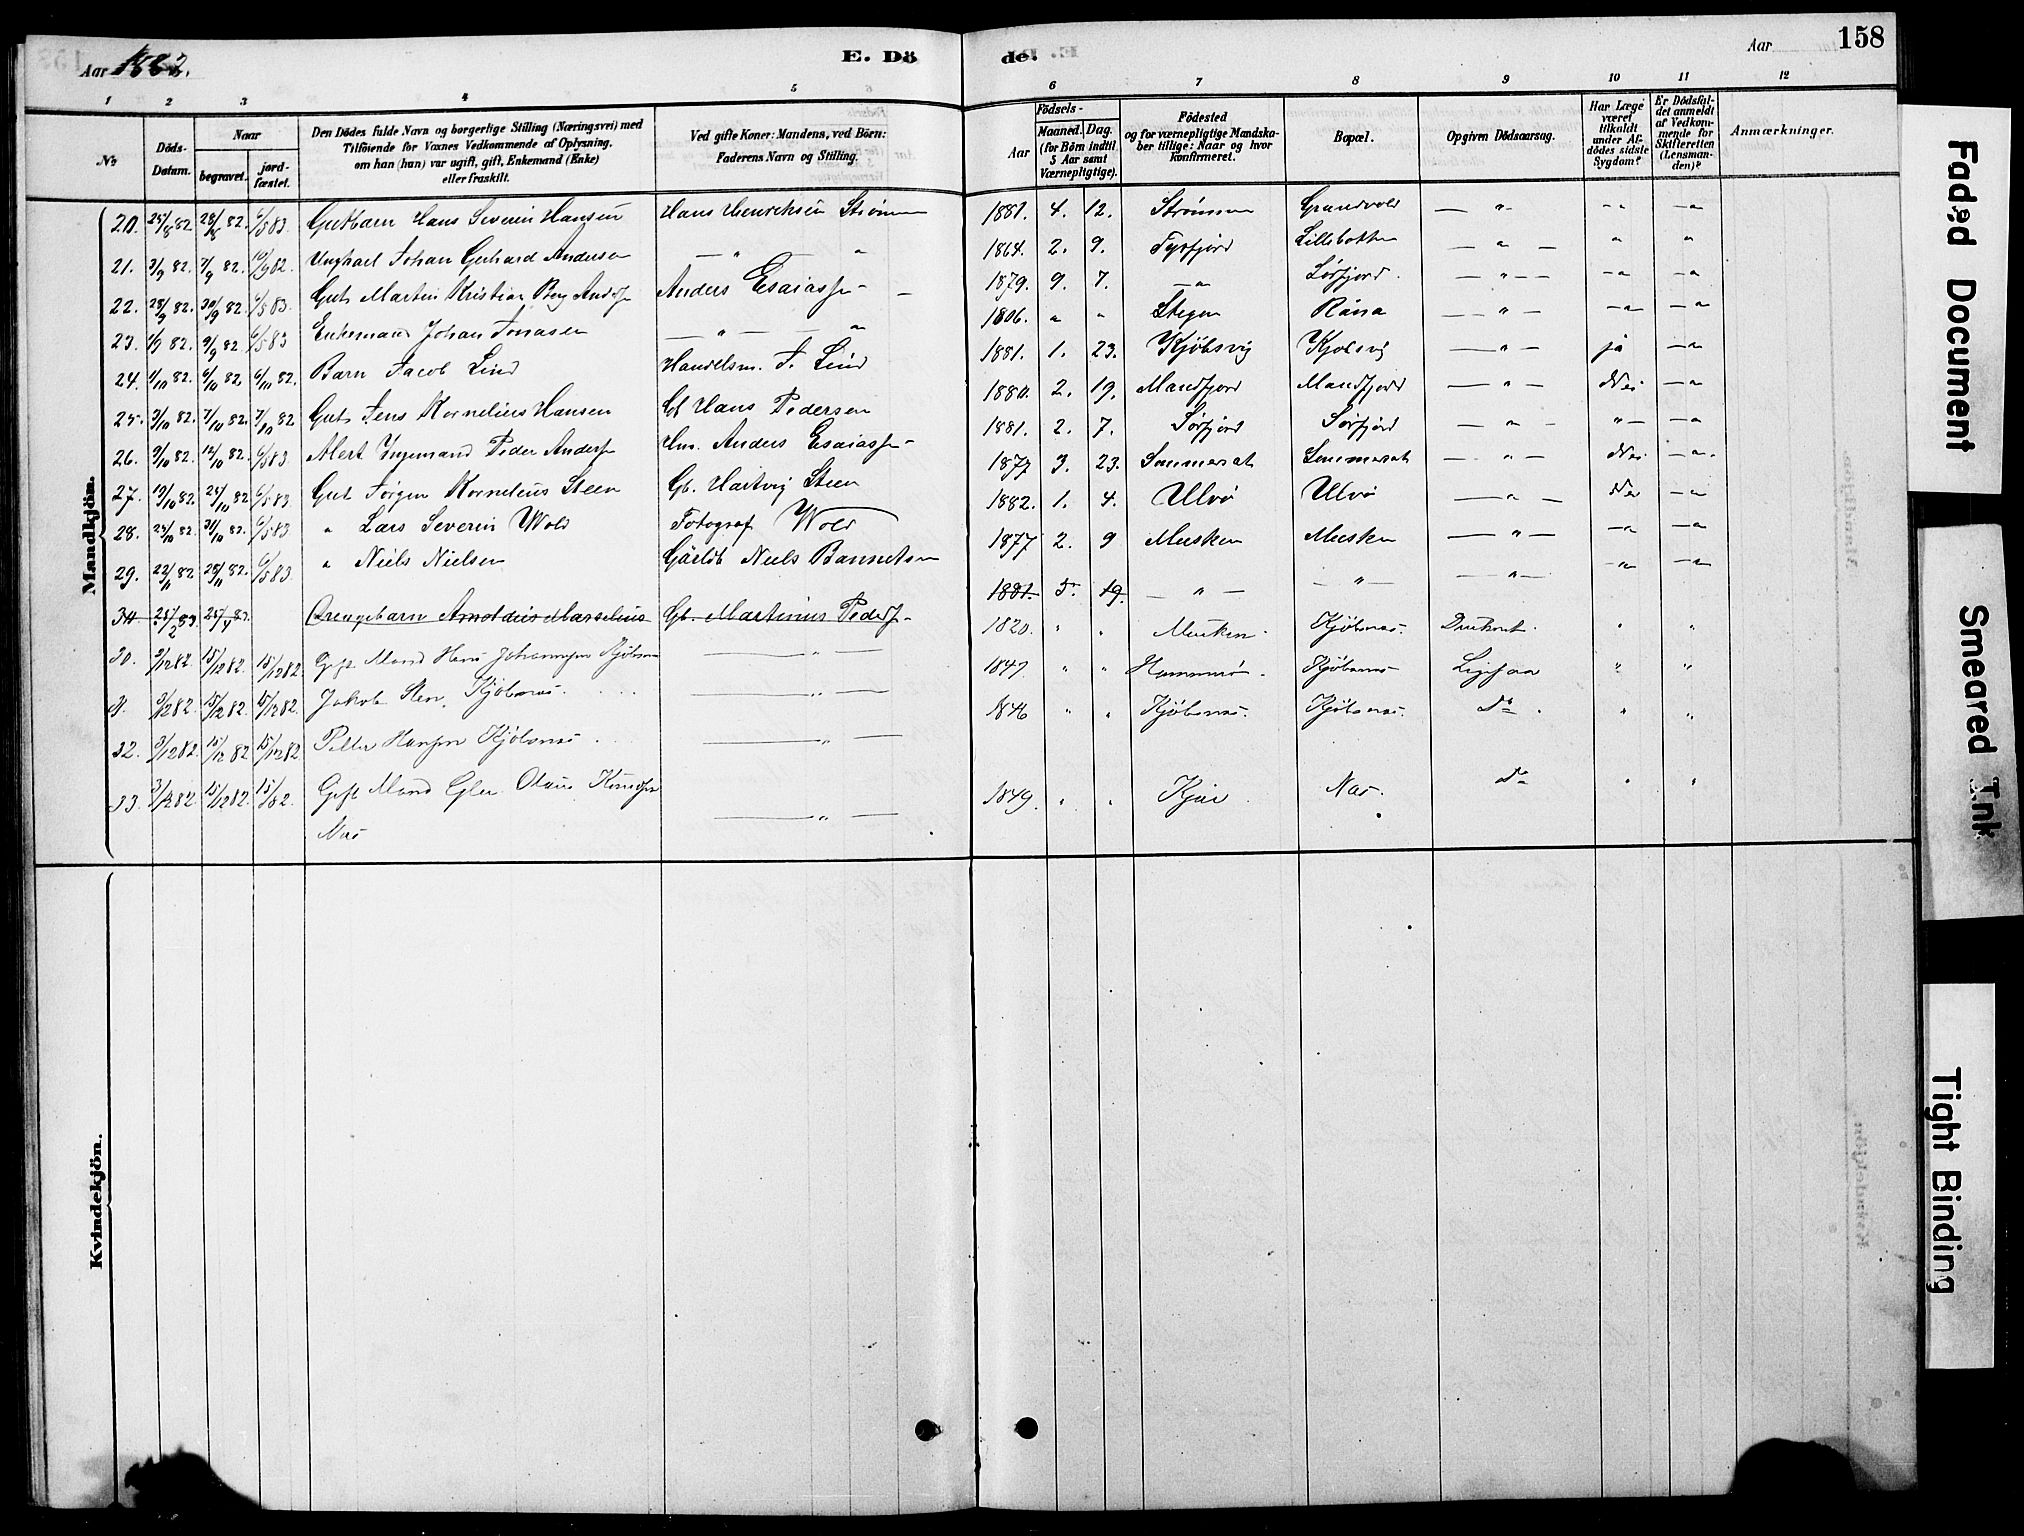 Aar 1882.
E. Dö
de.
Aar
158
1 2 3 4 5 6 7 8 9 10 11 12
No
Döds-Datum.
Naar
begravet.
jord-fæstet.
Den Dödes fulde Navn og borgerlige Stilling (Næringsvei) med
Tilföiende for Voxnes Vedkommende af Oplysning,
om han (hun) var ugift, gift, Enkemand (Enke)
eller fraskilt.
Ved gifte Koner: Mandens, ved Börn:
Faderens Navn og Stilling.
Födsels-
Aar
Maaned. Dag.
(for Börn indtil
5 Aar samt
Værnepligtige).
Födested
og for værnepligtige Mandska-
ber tillige: Naar og hvor
konfirmeret.
Bopæl.
Opgiven Dödsaarsag.
Har Læge
været
tilkaldt
under Af-
dödes sidste
Sygdom?
Er Dödsfal-
det anmeldt
af Vedkom-
mende for
Skifteretten
(Lensman-
den)?
Anmærkninger.
Mandkjön.
20. 25/8 82. 28/8 82. 6/5 83. Gutbarn Hans Severin Hansen Hans Henriksen Strømen 1881. 4. 12. Strømen Grundvold — " — " — "
21. 3/9 82. 7/9 82. 10/9 82. Ungkarl Johan Gerhard Andersen — " — " 1864. 2. 9. Tysfjord Lillebotten — " — " "
22. 28/9 82. 30/9 82. 6/5 83. Gut Martin Kristian Berg Anders Esaiass 1879. 9. 7. — " Sørfjord. — " — — " — "
23. 1/9 82. 9/9 82. 6/5 83 Enkemand Johan Jonasen — " — " 1806. " " Stegen Råna — " — — " — "
24. 1/10 82. 6/10 82. 6/10 82. Barn Jacob Lind Handelsm. F. Lind 1881. 1. 23. Kjöbsvig Kjobsvig — " — ja — "
25. 3/10 82. 7/10 82. 7/10 82 Gut Jens Kornelius Hansen Gb Hans Pedersen 1880. 2. 19. Mandfjord Mandfjord — " — Nei — "
26. 9/10 82. 12/10 82. 6/5 83. Ingemand Peder Anders Anders Esaiass 1881. 2. 7. Sørfjord Sørfjord — " — " — "
27. 19/10 82. 24/10 82. 6/5 83. Gut Jørgen Kornelius Steen Gb. Hartvig Steen 1877 3. 23. Sommerset Sommerset — " — Nei — "
28. 25/10 82. 31/10 82. 6/5 83 " Lars Severin Wold Fotograf Wold 1882. 1. 4. Ulvø Ulvø — " — Nei — "
29. 22/11 82 25/11 82. 6/5 83. " Niels Nielsen Niels 1877 2. 9 Musken Musken — " — — " — "
Drengebarn Arnoldus Marselius Gb. Martinus 1881. 5. 19. — " — — " — — " — — " — "
30. 3/12 82. 15/12 82. 15/12 82. Gift Mand Hans — " — 1820. " " Musken. Kjöbsnes. " "
3/12 82. 15/12 82. 15/12 82. Jakob Kjöbsnes. — " — 1847. " " Hammerö. Kjöbsnes " "
32. 3/12 82. 15/12 82 15/12 82 Petter Hansen Kjöbsnes — " — 1846 " " Kjöbsnes. Kjöbsnes. Do. " "
33. 3/12 82. 15/12 82. Gift Mand Olaus — " — 1849. " " Nes. Do " "
Nes
Kvindekjön.
Faded Document
Smeared Ink
Tight Binding